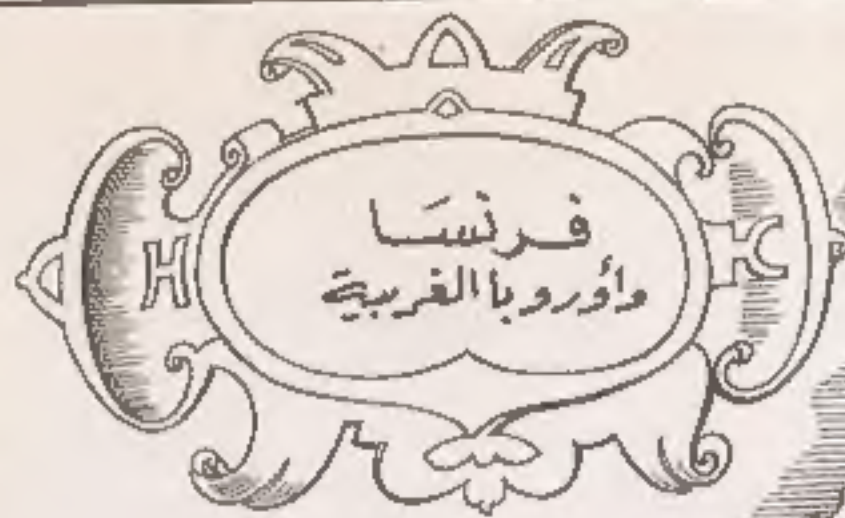 فرنسَا
وأوروبا الغربية